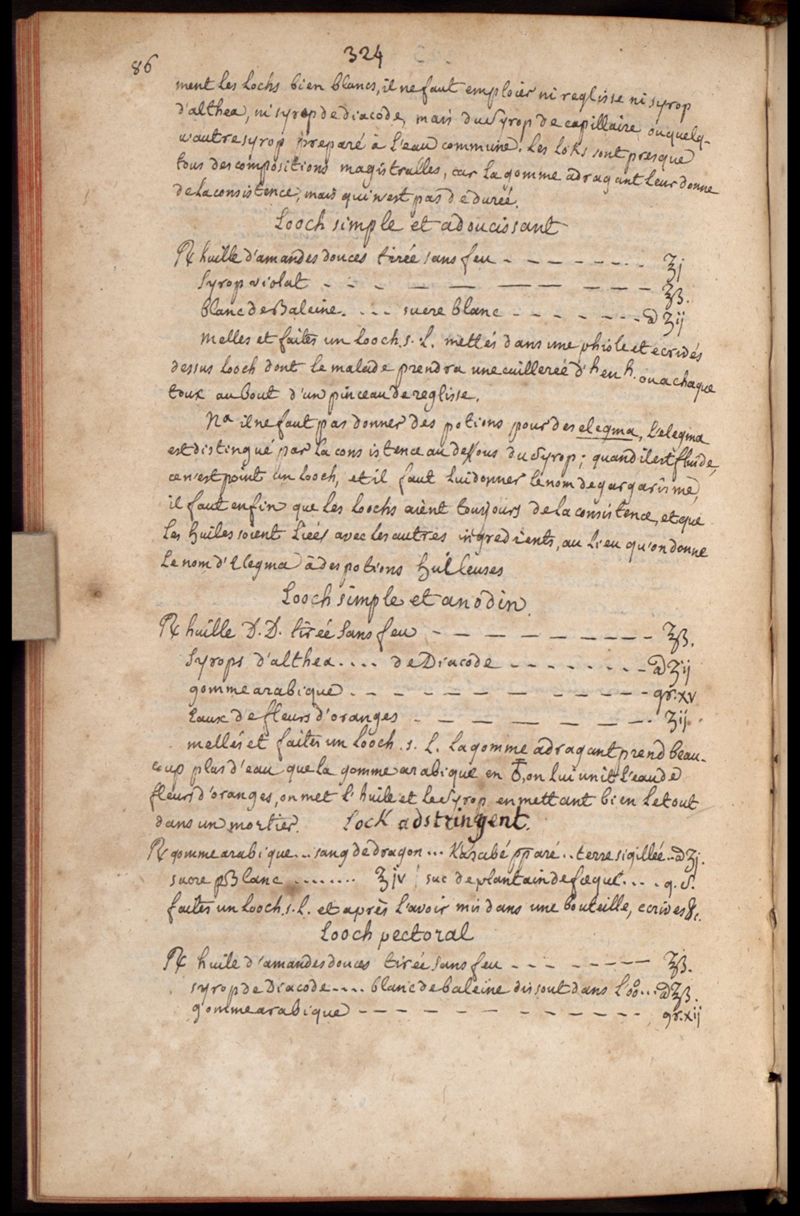 86
324
ment les lochs bien blancs, il ne faut emploier ni reglisse ni syrop
d'althea, ni syrop de diacode, mais du syrop de capillaire ou quelq-
u'autre syrop preparé à l'eau commune. Les loks sont presque
tous des compositions magistralles, car la gomme adragant leur donne
de la consistence, mais qui n'est pas de durée.
Looch simple et adoucissant
℞ huille d'amandes douces tirée sans feu - - - - - - - ℥j
syrop violat - - - - - - - - ℥ß.
blanc de Baleine. ... sucre blanc - - - - - - - ā ʒij
Melles et faites un Looch. s. L. mettés dans une phiole et ecrivés
dessus Looch dont le malade prendra une cuillereé d'h en h. ou a chaque
toux au bout d'un pinceau de reglisse.
Na il ne faut pas donner des potions pour des elegma, l'elegma
est distingué par la consistence au dessous du syrop; quand il est fluide,
ce n'est point un Looch, et il faut lui donner le nom de gargarisme,
il faut enfin que les Loochs aient tousjours de la consistence, et que
les huiles soient liées avec les autres ingredients, au lieu qu'on donne
le nom d'Elegma à des potions huilleuses
Looch simple et anodin.
℞ huille D.D. tirée sans feu - - - - - - - - ℥ß.
syrops d'althea.... de Diacode - - - - - - - ā ʒij
gomme arabique - - - - - - - - gr. xv
Eaux de fleurs d'oranges - - - - - - ʒij.
mellés et faites un Looch. s. L. la gomme adragant prend beau-
coup plus d'eau que la gomme arabique en , on lui unit l'eau de
fleurs d'oranges, on met l'huile et le syrop en mettant bien le tout
dans un mortier. Lock adstringent.
℞ gomme arabique... sang de dragon... Karabé pparé.. terre sigillée.. ā ʒj.
sucre Blanc ........ ʒiv suc de plantain defœqué.... q. s.
faites un Looch. s. L. et après l'avoir mis dans une bouteille, ecrives &c.
Looch pectoral
℞ huile d'amandes douces tirée sans feu - - - - - - - ℥ß.
syrop de Diacode.... blanc de baleine dissout dans l' ... ā ʒß.
gomme arabique - - - - - - - - - gr. xij